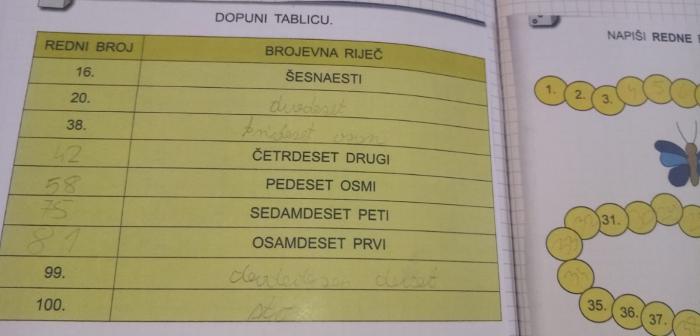 DOPUNI TABLICU.
REDNI BROJ BROJEVNA RIJEČ
16. ŠESNAESTI
20. dvadeset
38. trideset osam
42 ČETRDESET DRUGI
58 PEDESET OSMI
75 SEDAMDESET PETI
81 OSAMDESET PRVI
99.
100. sto
NAPIŠI REDNE
1. 2. 3. 4 5
31.
35. 36. 37.